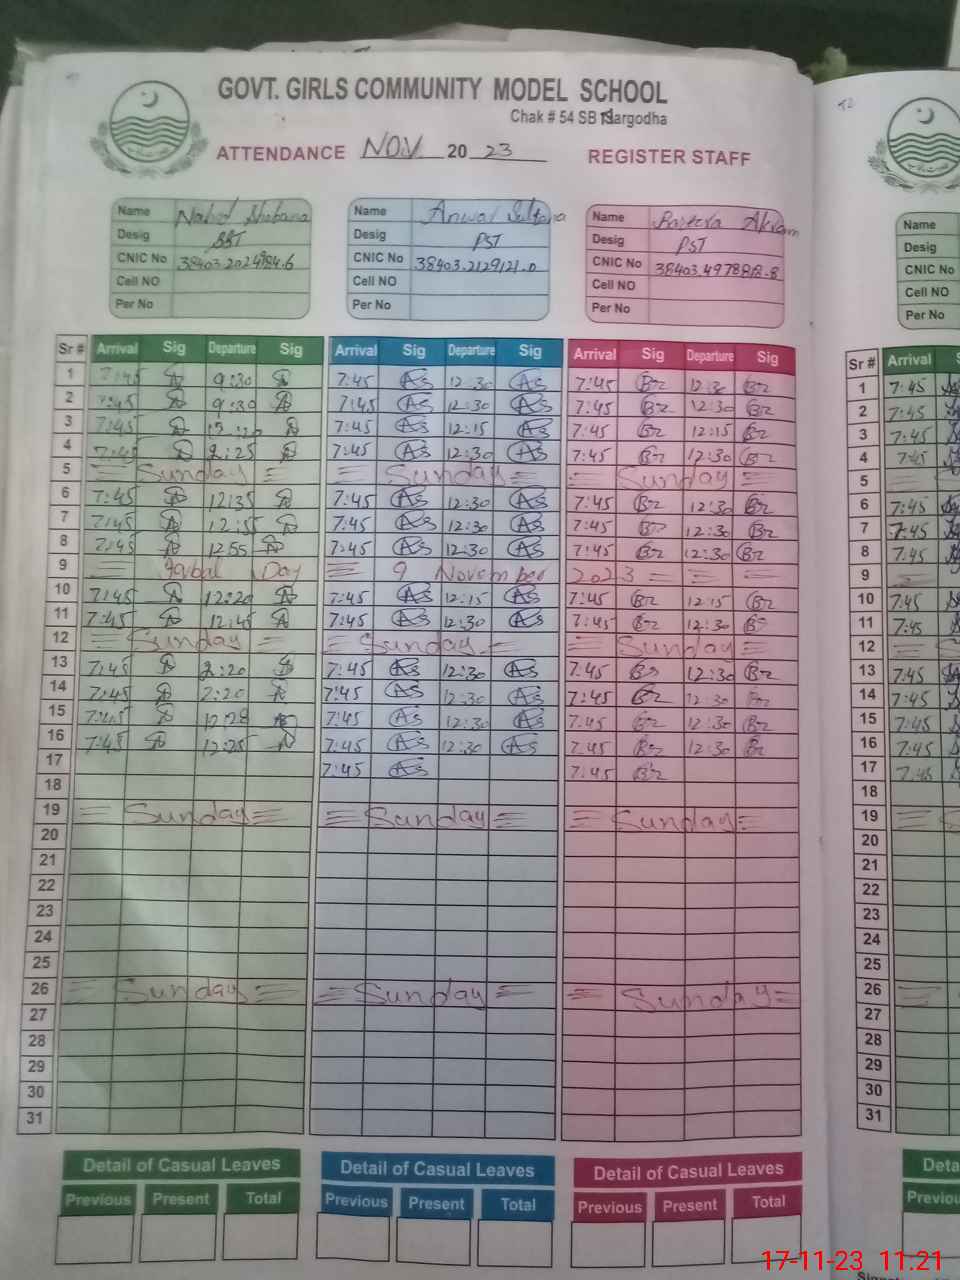 GOVT. GIRLS COMMUNITY MODEL SCHOOL
Chak # 54 SB Sargodha
ATTENDANCE NOV 20 23 REGISTER STAFF
Name Nahid Shabana Name Anwar Sultana Name Akram Name
Desig SST Desig PST Desig PST Desig
CNIC No CNIC No 38403.2129121.0 CNIC No CNIC No
Cell NO Cell NO Cell NO Cell NO
Per No Per No Per No Per No
Sr # Arrival Sig Departure Sig Arrival Sig Departure Sig Arrival Sig Departure Sig Sr # Arrival
1 7:45 9:30 7:45 As 12:30 As 7:45 Bz 12:30 Bz 1 7:45
2 7:45 9:30 7:45 As 12:30 As 7:45 Bz 12:30 Bz 2 7:45
3 7:45 7:45 As 12:15 As 7:45 Bz 12:15 Bz 3 7:45
4 7:45 2:25 7:45 As 12:30 As 7:45 Bz 12:30 Bz 4 7:45
5 Sunday Sunday Sunday 5
6 7:45 12:35 7:45 As 12:30 As 7:45 Bz 12:30 Bz 6 7:45
7 7:45 12:55 7:45 As 12:30 As 7:45 Bz 12:30 Bz 7 7:45
8 7:45 1255 7:45 As 12:30 As 7:45 Bz 12:30 Bz 8 7:45
9 Iqbal Day 9 November 2023 9
10 7:45 12:20 7:45 As 12:15 As 7:45 Bz 12:15 Bz 10 7:45
11 7:45 12:45 7:45 As 12:30 As 7:45 Bz 12:30 Bz 11 7:45
12 Sunday Sunday Sunday 12
13 7:45 2:20 7:45 As 12:30 As 7:45 Bz 12:30 Bz 13 7:45
14 7:45 2:20 7:45 As 12:30 As 7:45 Bz 12:30 Bz 14 7:45
15 7:45 12:28 7:45 As 12:30 As 7:45 Bz 12:30 Bz 15 7:45
16 7:45 12:25 7:45 As 12:30 As 7:45 Bz 12:30 Bz 16 7:45
17 7:45 As 7:45 Bz 17 7:45
18 18
19 Sunday Sunday Sunday 19
20 20
21 21
22 22
23 23
24 24
25 25
26 Sunday Sunday Sunday 26
27 27
28 28
29 29
30 30
31 31
Detail of Casual Leaves Detail of Casual Leaves Detail of Casual Leaves
Previous Present Total Previous Present Total Previous Present Total
17-11-23 11.21